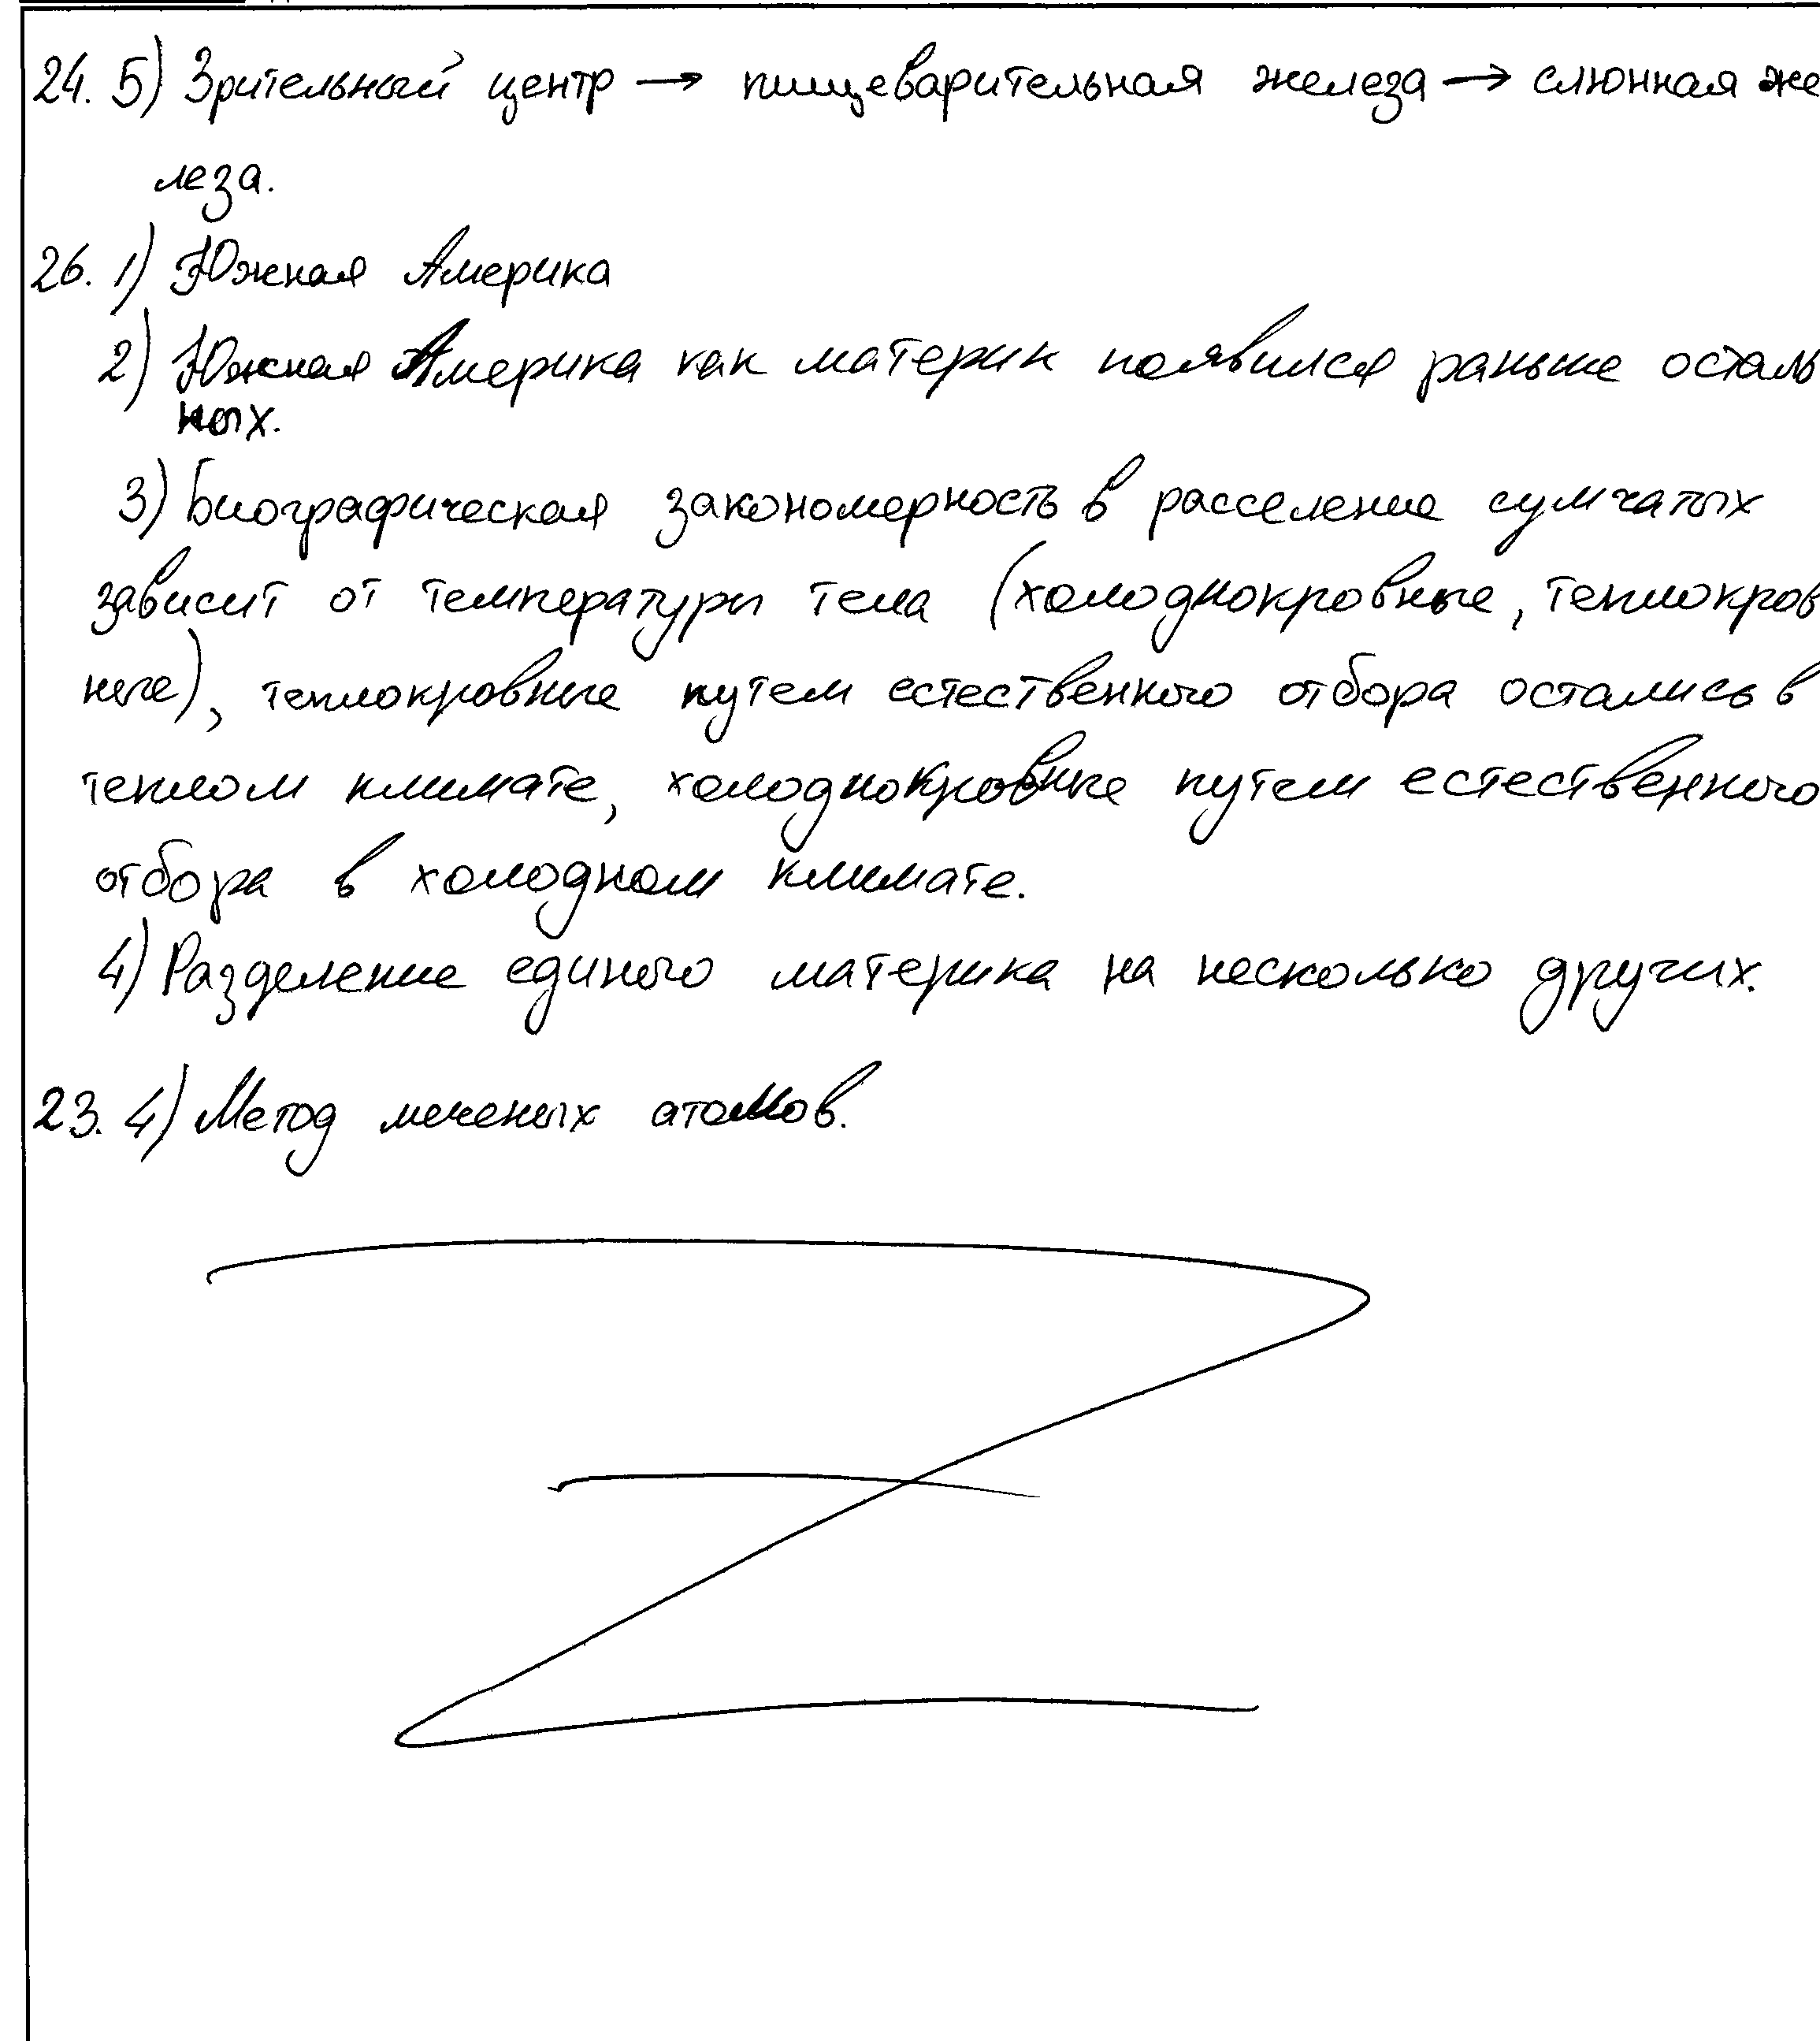 24. 5) Зрительный центр → пищеварительная железа → слюнная же
леза.
26. 1) Южная Америка
2) Южная Америка как материк появился раньше осталь
ных.
3) Биографическая закономерность в расселение сумчатых
зависит от температуры тела (холоднокровные, теплокров
ные), теплокровные путем естественного отбора остались в
теплом климате, холоднокровные путем естественного
отбора в холодном климате.
4) Разделение единого материка на несколько других.
23. 4) Метод меченых атомов.